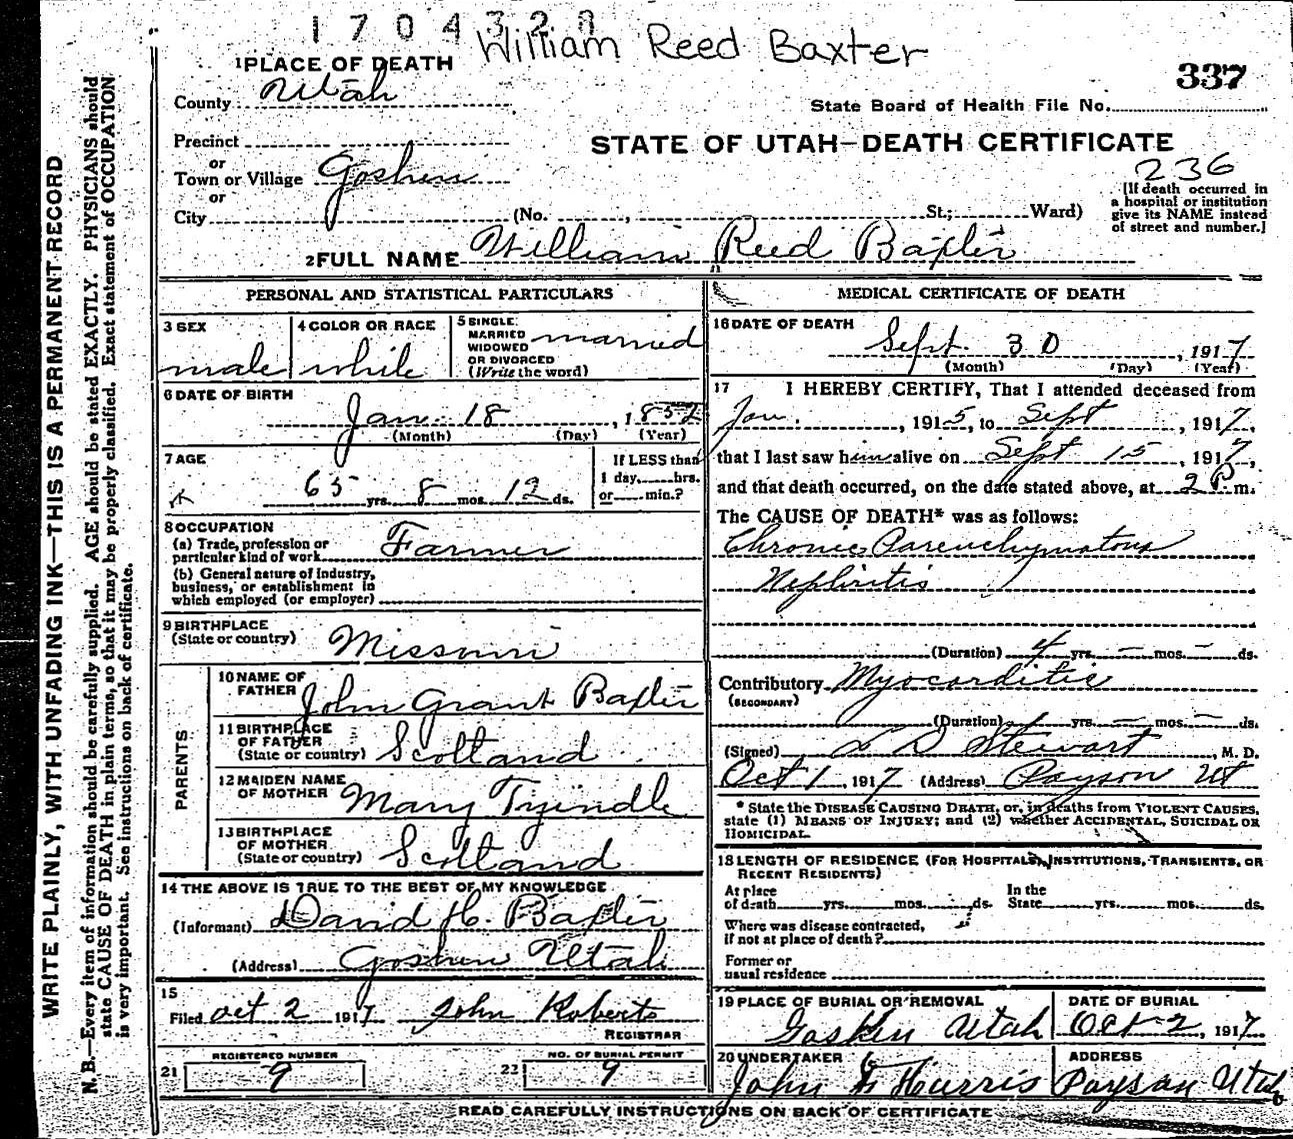 1704320
William Reed Baxter
1 PLACE OF DEATH
County Utah
337
State Board of Health File No.
Precinct
or
Town or Village Goshen
or
City (No. , St.; Ward)
STATE OF UTAH—DEATH CERTIFICATE
236
[If death occurred in
a hospital or institution
give its NAME instead
of street and number.]
2 FULL NAME William Reed Baxter
PERSONAL AND STATISTICAL PARTICULARS
3 SEX
male
4 COLOR OR RACE
white
5 SINGLE.
MARRIED
WIDOWED
OR DIVORCED
(Write the word)
married
6 DATE OF BIRTH
Jan 18, 1852
(Month) (Day) (Year)
7 AGE
65 yrs. 8 mos. 12 ds.
If LESS than
1 day, hrs.
or min.?
8 OCCUPATION
(a) Trade, profession or
particular kind of work Farmer
(b) General nature of industry,
business, or establishment in
which employed (or employer)
9 BIRTHPLACE
(State or country) Missouri
PARENTS
10 NAME OF
FATHER John Grant Baxter
11 BIRTHPLACE
OF FATHER
(State or country) Scotland
12 MAIDEN NAME
OF MOTHER Mary
13 BIRTHPLACE
OF MOTHER
(State or country) Scotland
14 THE ABOVE IS TRUE TO THE BEST OF MY KNOWLEDGE
(Informant) David H. Baxter
(Address) Goshen Utah
15
Filed Oct 2 1917 John Roberts
REGISTRAR
REGISTERED NUMBER
21 9
NO. OF BURIAL PERMIT
22 9
MEDICAL CERTIFICATE OF DEATH
16 DATE OF DEATH
Sept. 30, 1917
(Month) (Day) (Year)
17 I HEREBY CERTIFY, That I attended deceased from
Jan., 1915, to Sept, 1917,
that I last saw him alive on Sept 15, 1917,
and that death occurred, on the date stated above, at 2 P. m.
The CAUSE OF DEATH* was as follows:
Chronic Parenchymatous
Nephritis
(Duration) 4 yrs. — mos. — ds.
Contributory Myocarditis
(SECONDARY)
(Duration) 1 yrs. — mos. — ds.
(Signed) L D Stewart, M. D.
Oct 1, 1917 (Address) Payson Ut
* State the DISEASE CAUSING DEATH, or, in deaths from VIOLENT CAUSES,
state (1) MEANS OF INJURY; and (2) whether ACCIDENTAL, SUICIDAL OR
HOMICIDAL.
18 LENGTH OF RESIDENCE (FOR HOSPITALS, INSTITUTIONS, TRANSIENTS, OR
RECENT RESIDENTS)
At place
of death yrs. mos. ds.
In the
State yrs. mos. ds.
Where was disease contracted,
if not at place of death?
Former or
usual residence
19 PLACE OF BURIAL OR REMOVAL
Goshen Utah
DATE OF BURIAL
Oct 2, 1917
20 UNDERTAKER
John F Hurris
ADDRESS
Paysan Utah
READ CAREFULLY INSTRUCTIONS ON BACK OF CERTIFICATE
WRITE PLAINLY, WITH UNFADING INK—THIS IS A PERMANENT RECORD
N. B.—Every item of information should be carefully supplied. AGE should be stated EXACTLY. PHYSICIANS should
state CAUSE OF DEATH in plain terms, so that it may be properly classified. Exact statement of OCCUPATION
is very important. See instructions on back of certificate.